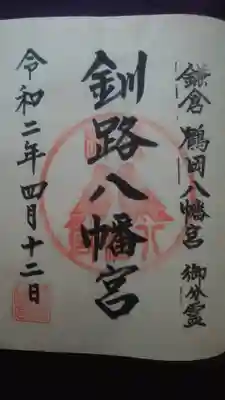 鎌倉 鶴岡八幡宮 御分霊
釧路八幡宮
令和二年四月十二日